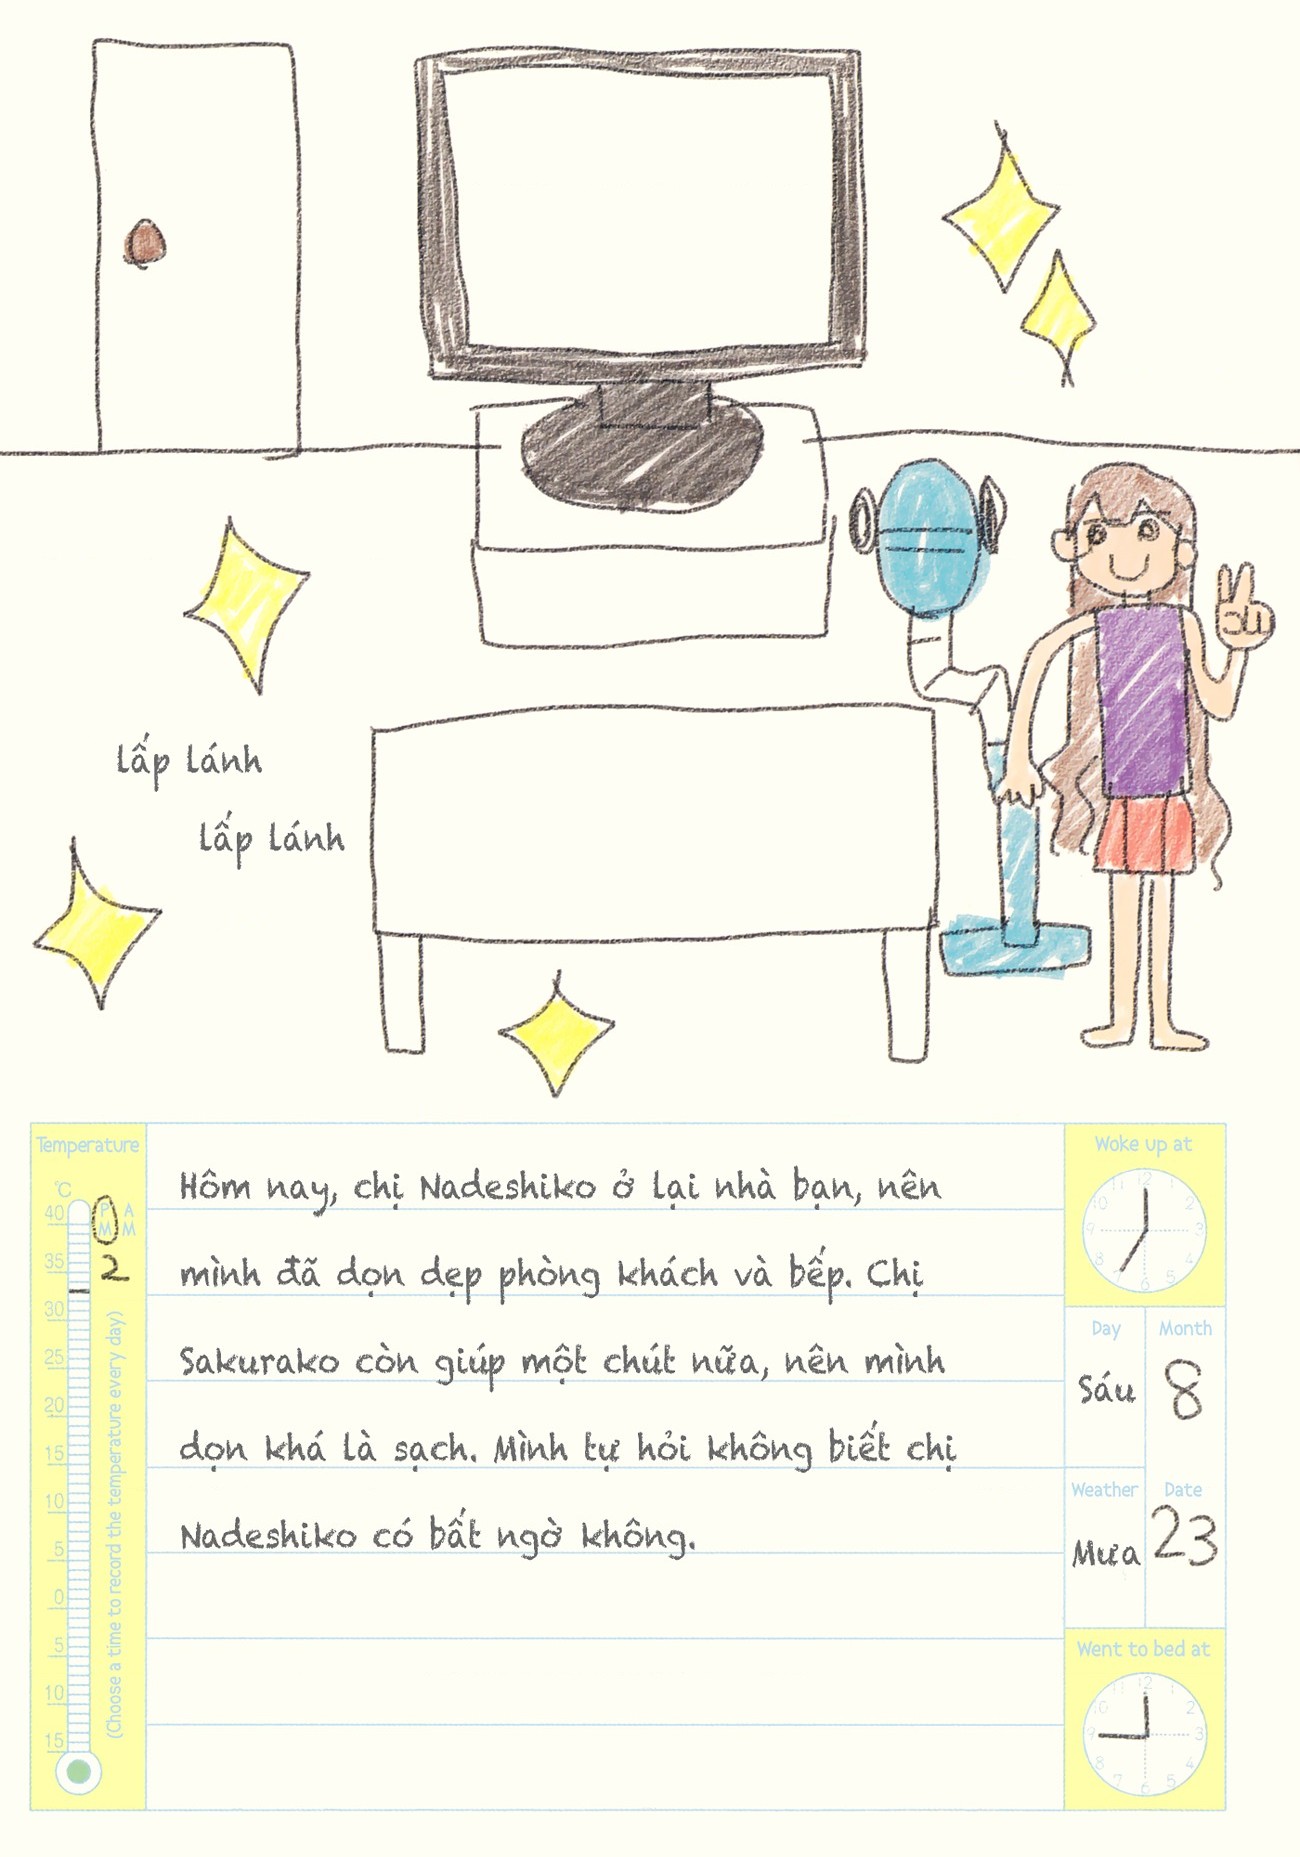 lấp lánh
lấp lánh
Temperature
°C
40
35
30
25
20
15
10
5
0
5
10
15
PM
AM
2
(Choose a time to record the temperature every day)
Hôm nay, chị Nadeshiko ở lại nhà bạn, nên
mình đã dọn dẹp phòng khách và bếp. Chị
Sakurako còn giúp một chút nữa, nên mình
dọn khá là sạch. Mình tự hỏi không biết chị
Nadeshiko có bất ngờ không.
Woke up at
11 12 1
10 2
9 3
8 4
7 6 5
Day
Sáu
Month
8
Weather
Mưa
Date
23
Went to bed at
11 12 1
10 2
9 3
8 4
7 6 5